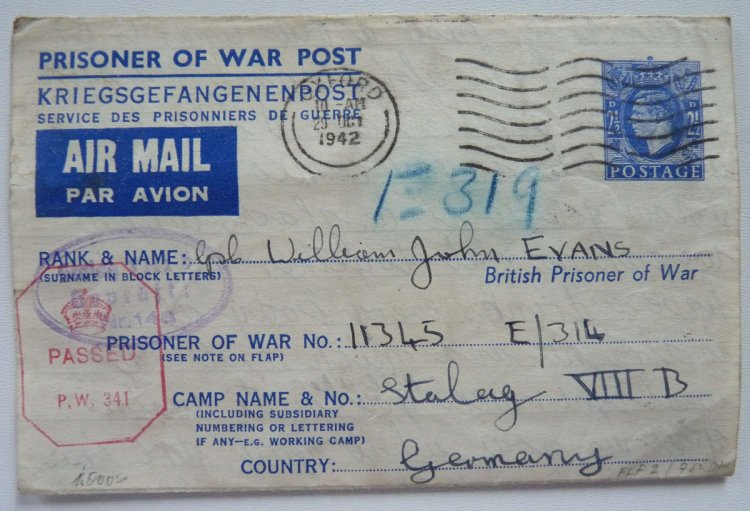 PRISONER OF WAR POST
KRIEGSGEFANGENENPOST
SERVICE DES PRISONNIERS DE GUERRE
AIR MAIL
PAR AVION
OXFORD
10 - AM
29 OCT
1942
D D
2½ 2½
POSTAGE
E 319
RANK & NAME: Cpl William John EVANS
(SURNAME IN BLOCK LETTERS)
British Prisoner of War
PRISONER OF WAR No.: 11345 E/314
(SEE NOTE ON FLAP)
PASSED
P.W. 341
CAMP NAME & No.: Stalag VIII B
(INCLUDING SUBSIDIARY
NUMBERING OR LETTERING
IF ANY—E.G. WORKING CAMP)
COUNTRY: Germany